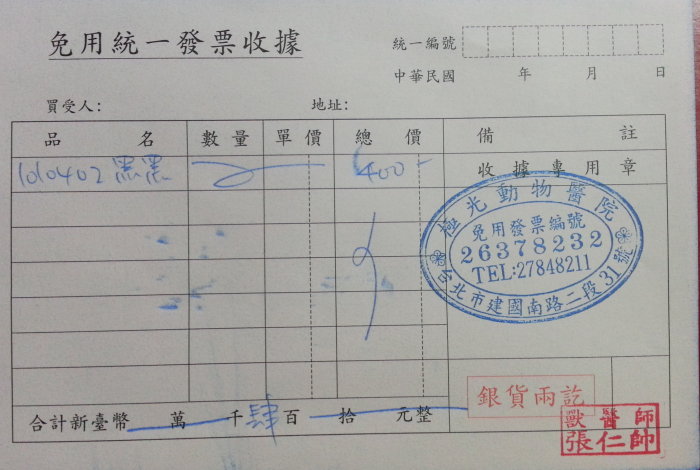 免用統一發票收據
統一編號
中華民國 年 月 日
買受人: 地址:
品名 數量 單價 總價 備註
收據專用章
1010402 黑黑 400-
極北動物醫院
免用發票編號
26378232
TEL:27848211
台北市建國南路二段31號
合計新臺幣 萬 千肆百 拾 元整
銀貨兩訖
獸醫師
張仁帥